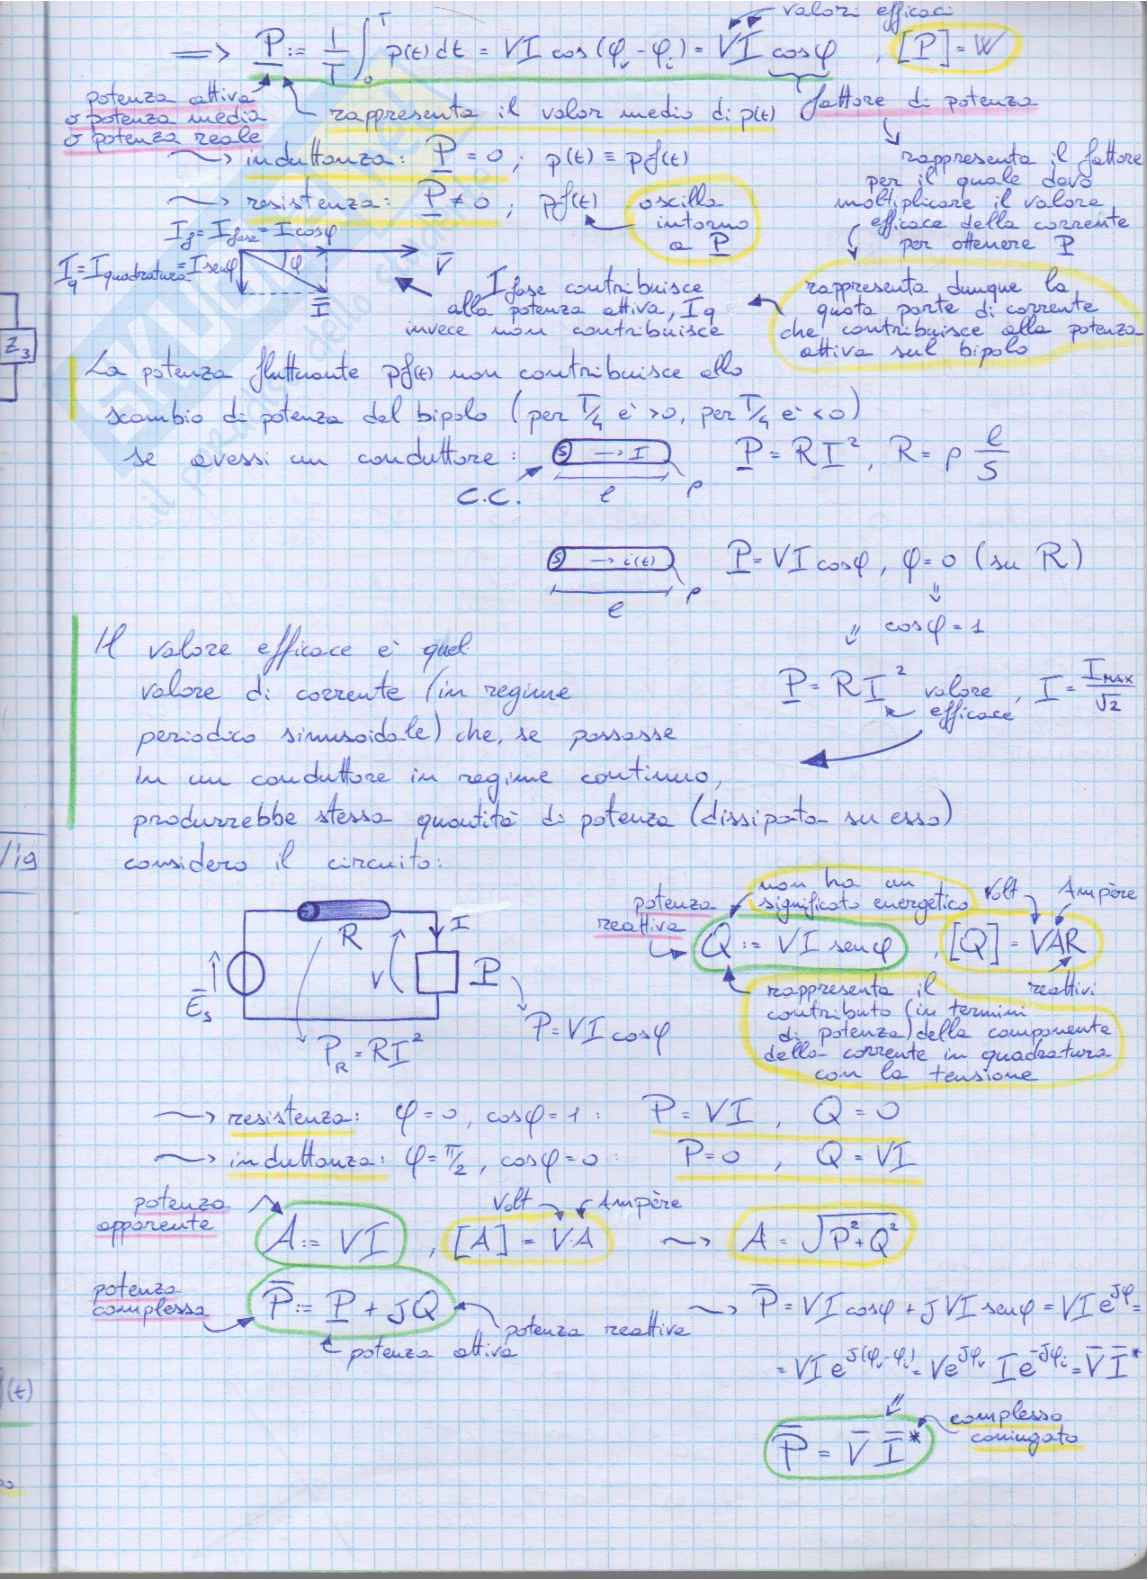 valori efficaci
=> P := 1/T ∫₀ᵀ p(t) dt = VI cos(φᵥ - φᵢ) = VI cosφ , [P] = W
potenza attiva
o potenza media
o potenza reale
rappresenta il valor medio di p(t)
fattore di potenza
~> induttanza: P = 0 ; p(t) ≡ pf(t)
~> resistenza: P ≠ 0 ; pf(t) oscilla
intorno
a P
rappresenta il fattore
per il quale devo
moltiplicare il valore
efficace della corrente
per ottenere P
If = Ifase = I cosφ
Iq = Iquadratura = I senφ
φ
V̄
Ī
Ifase contribuisce
alla potenza attiva, Iq
invece non contribuisce
rappresenta dunque la
quota parte di corrente
che contribuisce alla potenza
attiva sul bipolo
Z₃
La potenza fluttuante pf(t) non contribuisce allo
scambio di potenza del bipolo (per T/4 è >0, per T/4 è <0)
se avessi un conduttore: S → I P = RI², R = ρ l/S
C.C. l ρ
S → i(t) P = VI cosφ, φ = 0 (su R)
l ρ
⇓
⇓ cosφ = 1
Il valore efficace è quel
valore di corrente (in regime
periodico sinusoidale) che, se passasse
in un conduttore in regime continuo,
produrrebbe stessa quantità di potenza (dissipata su esso)
P = RI² valore efficace , I = IMAX/√2
considero il circuito:
R
I
V
P
Ēs
P_R = RI²
P = VI cosφ
potenza
reattiva
non ha un
significato energetico
Volt Ampère
Q := VI senφ , [Q] = VAR
reattivi
rappresenta il
contributo (in termini
di potenza) della componente
della corrente in quadratura
con la tensione
~> resistenza: φ = 0, cosφ = 1 : P = VI , Q = 0
~> induttanza: φ = π/2, cosφ = 0 : P = 0 , Q = VI
potenza
apparente
Volt Ampère
A := VI , [A] = VA ~> A = √P² + Q²
potenza
complessa
P̄ := P + jQ
potenza reattiva
potenza attiva
~> P̄ = VI cosφ + jVI senφ = VI e^jφ =
= VI e^j(φᵥ-φᵢ) = V e^jφᵥ I e^-jφᵢ = V̄ Ī*
⇓
P̄ = V̄ Ī*
complesso
coniugato
(t)